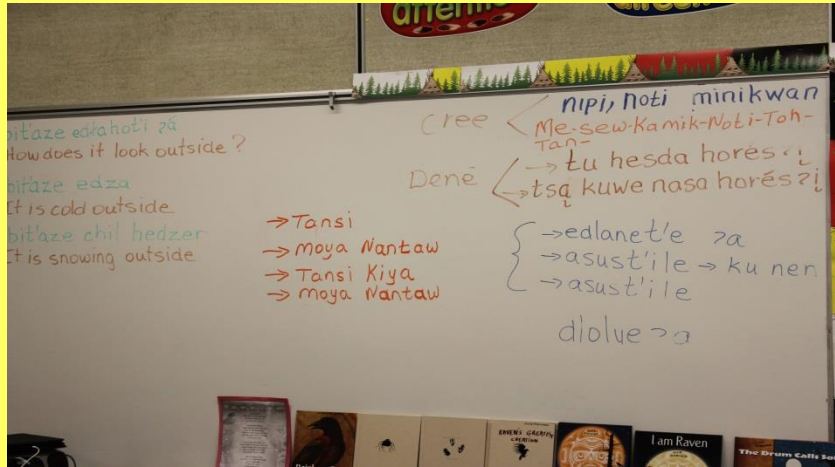 bit'aze edłahoti ɂá
How does it look outside?
bit'aze edza
It is cold outside
bit'aze chil hedzer
It is snowing outside
→ Tansi
→ Moya Nantaw
→ Tansi Kiya
→ Moya Nantaw
Cree
nipi, noti minikwan
Me-sew-Kamik-Noti-Toh-
Tan-
Dené
→ tu hesda horésɂį
→ tsą kuwe nasa horésɂį
→ edlanet'e ɂa
→ asust'ile → ku nen
→ asust'ile
diolve ɂa
RAVEN'S GREATEST
CREATION
I am Raven
The Drum Calls So